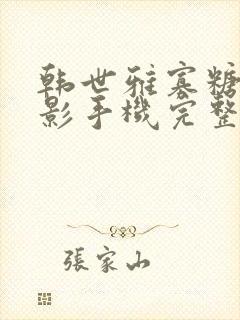 韩世雅寡糖
影手機完整
張家山